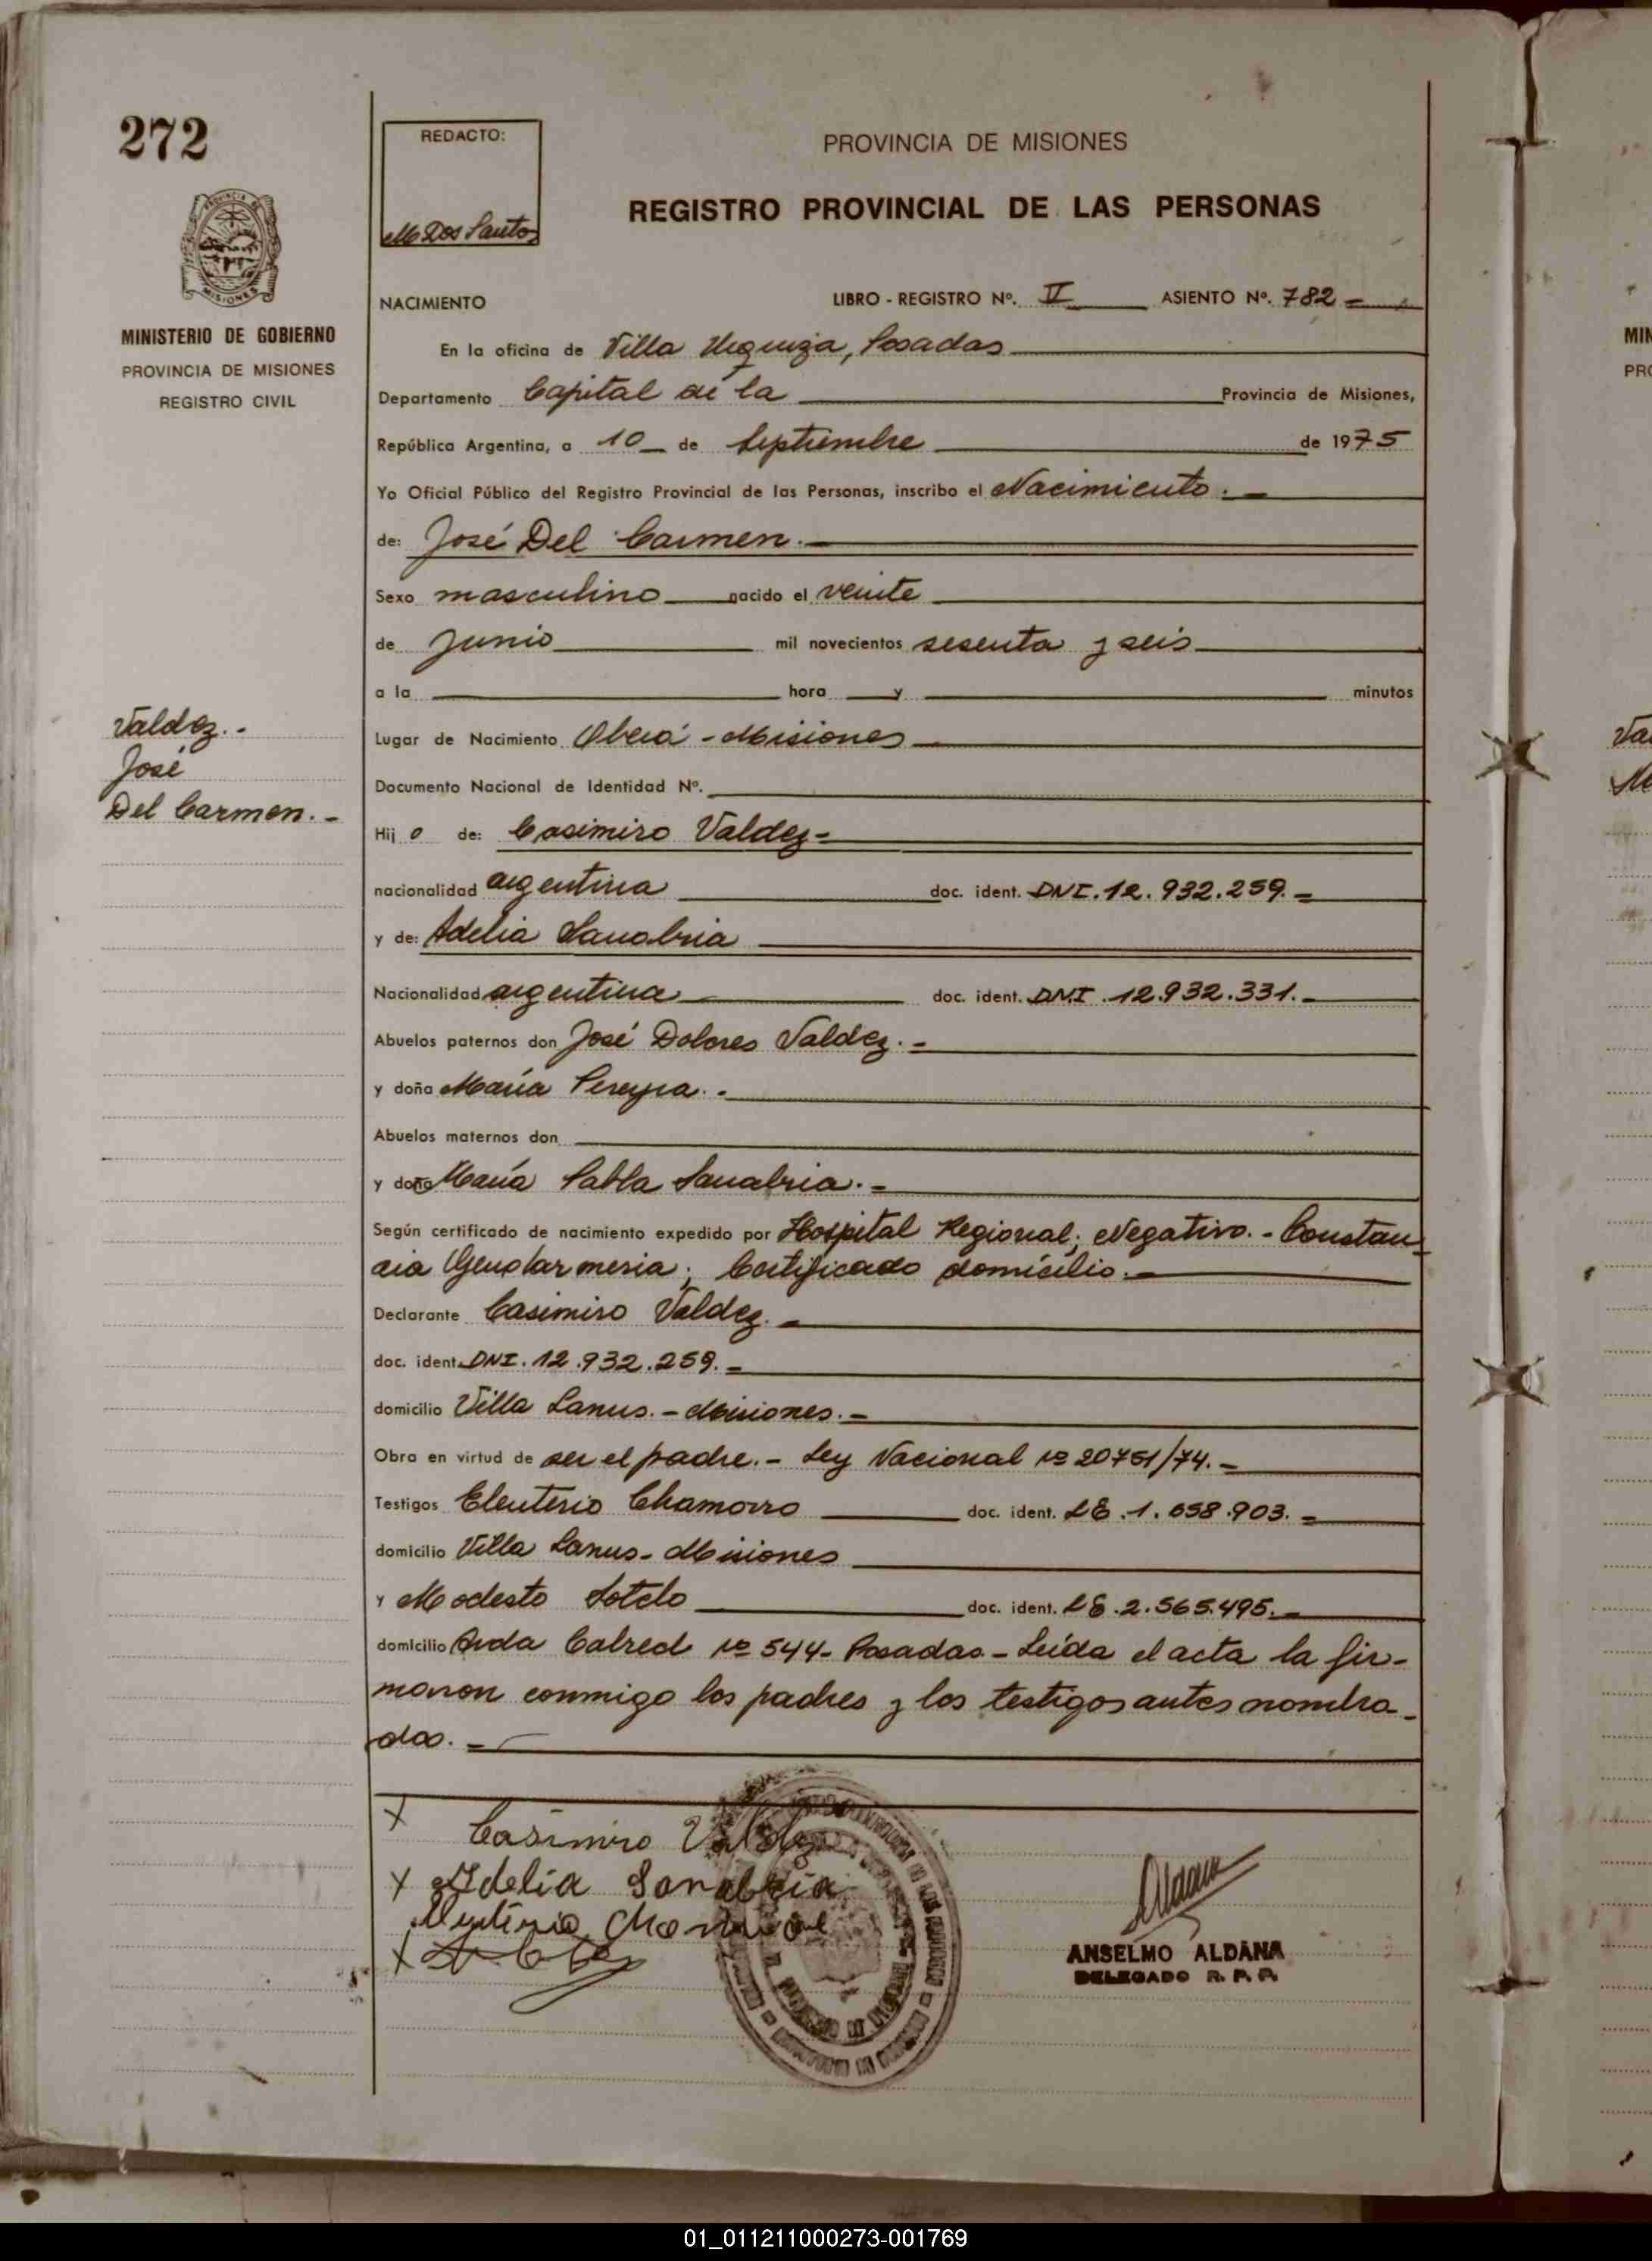 272
REDACTO:
M Dos Santos
PROVINCIA DE MISIONES
REGISTRO PROVINCIAL DE LAS PERSONAS
MISIONES
MINISTERIO DE GOBIERNO
PROVINCIA DE MISIONES
REGISTRO CIVIL
NACIMIENTO LIBRO - REGISTRO Nº. II ASIENTO Nº. 782 =
En la oficina de Villa Urquiza, Posadas
Departamento Capital de la Provincia de Misiones,
República Argentina, a 10 de Septiembre de 1975
Yo Oficial Público del Registro Provincial de las Personas, inscribo el Nacimiento.-
de: José Del Carmen.-
Sexo masculino nacido el veinte
de Junio mil novecientos sesenta y seis
a la hora y minutos
Lugar de Nacimiento Oberá - Misiones
Documento Nacional de Identidad Nº.
Valdez.-
José
Del Carmen.-
Hij o de: Casimiro Valdez-
nacionalidad argentina doc. ident. DNI. 12.932.259.=
y de: Adelia Sanabria
Nacionalidad argentina doc. ident. DNI. 12.932.331.-
Abuelos paternos don José Dolores Valdez.-
y doña María Pereyra.-
Abuelos maternos don
y doña María Pabla Sanabria.-
Según certificado de nacimiento expedido por Hospital Regional; Negativo.- Constan-
cia Gendarmeria; Certificado domicilio.-
Declarante Casimiro Valdez.-
doc. ident. DNI. 12.932.259.-
domicilio Villa Lanus.- Misiones.-
Obra en virtud de ser el padre.- Ley Nacional Nº 20751/74.-
Testigos Eleuterio Chamorro doc. ident. LE.1.658.903.=
domicilio Villa Lanus- Misiones
y Modesto Sotelo doc. ident. LE.2.565.495.-
domicilio Avda Cabred Nº 544- Posadas- Leída el acta la fir-
maron conmigo los padres y los testigos antes nombra-
dos.-
X Casimiro Valdez
X Adelia Sanabria
X
ANSELMO ALDANA
DELEGADO R. P. P.
MIN
PRO
Va
01_011211000273-001769